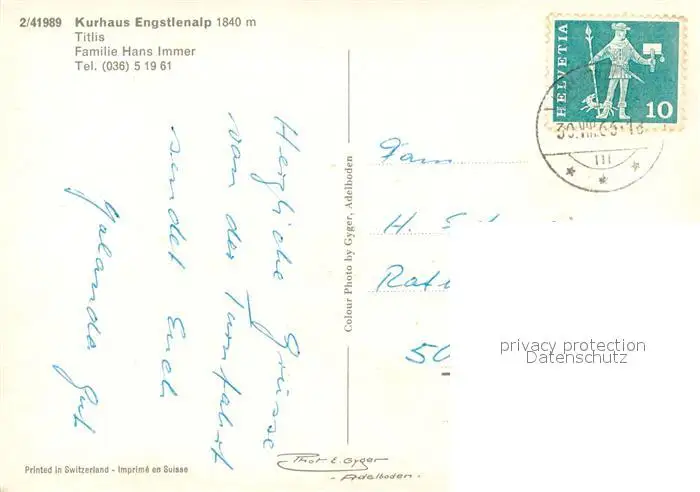 2/41989 Kurhaus Engstlenalp 1840 m
Titlis
Familie Hans Immer
Tel. (036) 5 19 61
Herzliche Grüsse
von der Turnfahrt
sendet Euch
Jolanda Gut
Colour Photo by Gyger, Adelboden
HELVETIA
10
Fam
H.
50
privacy protection
Datenschutz
Printed in Switzerland - Imprimé en Suisse
Phot. E. Gyger
- Adelboden -